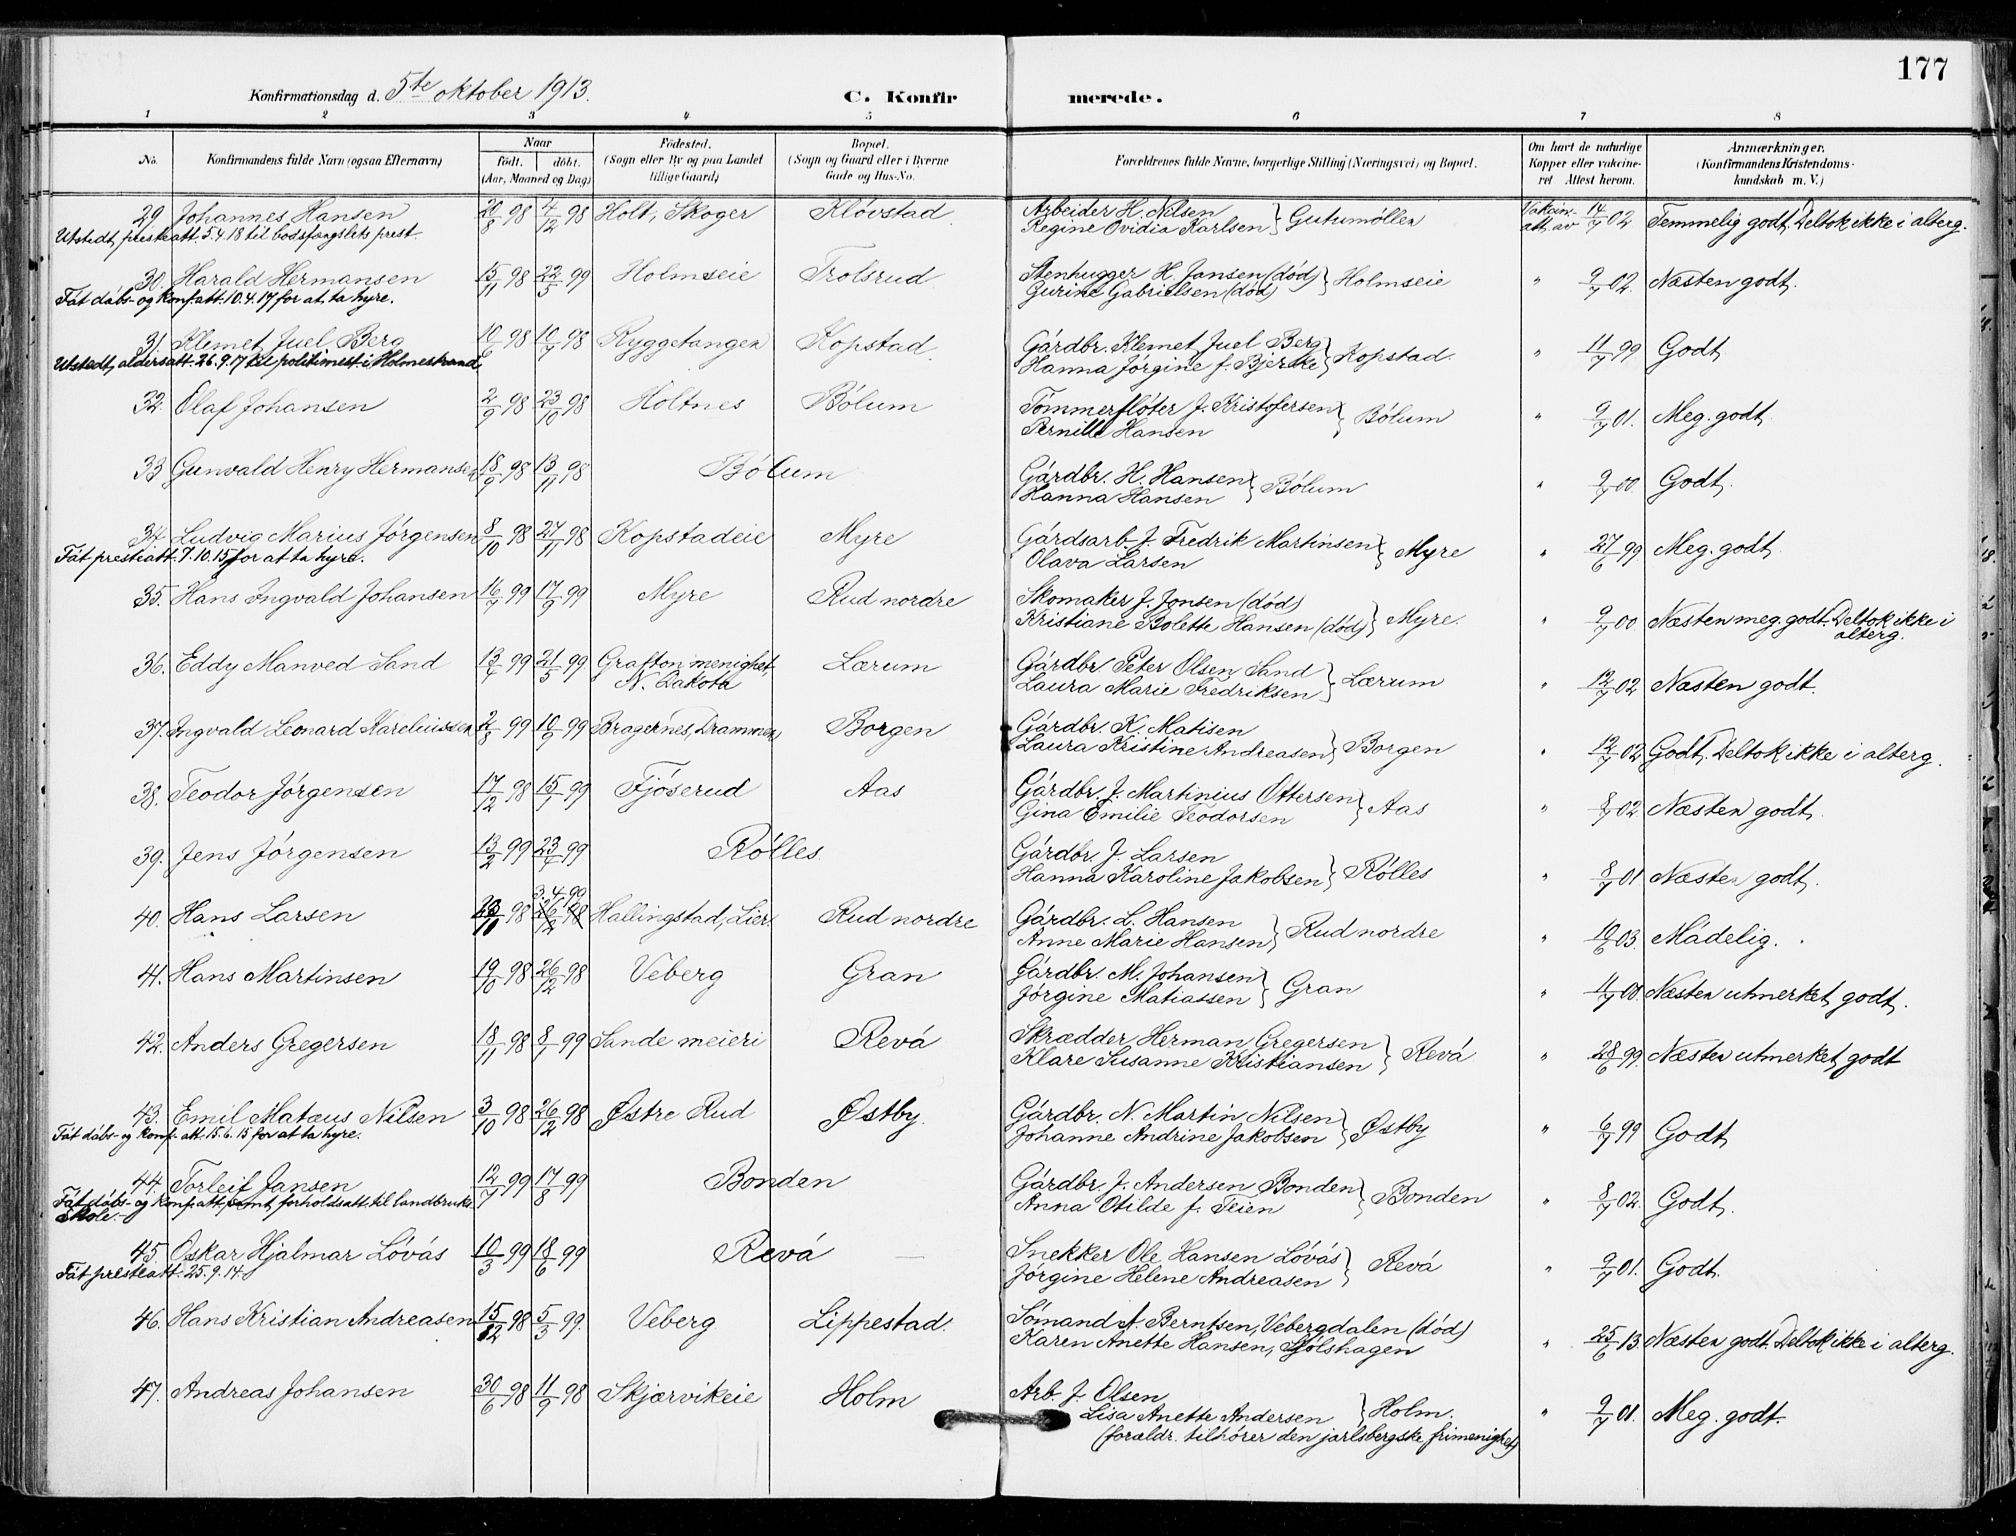 177
Konfirmationsdag d. 5te oktober 1913.
C. Konfirmerede.
1 2 3 4 5 6 7 8
No. Konfirmandens fulde Navn (ogsaa Efternavn) Naar født. døbt. (Aar, Maaned og Dag) Fødested. (Sogn eller By og paa Landet tillige Gaard) Bopæl. (Sogn og Gaard eller i Byerne Gade og Hus-No. Forældrenes fulde Navne, borgerlige Stilling (Næringsvei) og Bopæl. Om havt de naturlige Kopper eller vaccineret Attest herom. Anmærkninger. (Konfirmandens Kristendomskundskab m. V.)
29. Johannes Hansen 20/8 98 4/12 98 Holt, Skoger Kløvstad. Arbeider H. Nilsen } Gutumøllen Vakcin. att. av 14/7 02 Temmelig godt. Deltok ikke i alterg.
Utstedt presteatt. 5.4.18 til bodsfængslets prest. Regine Ovidia Karlsen
30. Harald Hermansen 15/11 98 22/5 99 Holmseie Trolsrud Stenhugger H. Jansen (død) } Holmseie " 9/7 02. Næsten godt.
Fåt dåbs- og konf. att. 10.4.17 for at ta hyre. Gurine Gabrielsen (død)
31. Klemet Juel Berg 10/6 98 10/7 98 Ryggetangen Kopstad. Gårdbr. Klemet Juel Berg } Kopstad. " 11/7 99 Godt
Utstedt aldersatt. 26.9.17 til politimest. i Holmestrand. Hanna Jørgine f. Bjerke
32. Olaf Johansen 2/9 98 23/10 98 Holtnes Bølum Tømmerfløter J. Kristofersen } Bølum " 9/7 01. Meg. godt.
Pernille Hansen
33. Gunvald Henry Hermansen 18/9 98 13/11 98 Bølum Gårdbr. H. Hansen } Bølum " 9/7 00 Godt.
Hanna Hansen
34. Ludvig Marius Jørgensen 8/10 98 27/11 98 Kopstadeie Myre Gårdsarb. J. Fredrik Martinsen } Myre " 27/6 99 Meg. godt.
Fåt presteatt. 7.10.15 for at ta hyre. Olava Larsen
35. Hans Ingvald Johansen 16/7 99 17/9 99 Myre Rud nordre Skomaker J. Jonsen (død) } Myre. " 9/7 00 Næsten meg. godt. Deltok ikke i alterg.
Kristiane Bolette Hansen (død)
36. Eddy Manved Sand 13/4 99 21/5 99 Grafton menighet, N. Dakota Lærum Gårdbr. Peter Olsen Sand } Lærum " 12/7 02 Næsten godt.
Laura Marie Fredriksen
37. Ingvald Leonard Kareliussen 2/8 99 10/9 99 Bragernes, Drammen Borgen Gårdbr. K. Matisen } Borgen " 12/7 02 Godt. Deltok ikke i alterg.
Laura Kristine Andreasen
38. Teodor Jørgensen 17/12 98 15/1 99 Fjøserud Aas Gårdbr. J. Martinius Ottersen } Aas " 8/7 02 Næsten godt.
Gina Emilie Teodorsen
39. Jens Jørgensen 13/2 99 23/4 99 Rølles. Gårdbr. J. Larsen } Rølles " 8/7 01 Næsten godt.
Hanna Karoline Jakobsen
3.4.99
40. Hans Larsen 98 26/12 98 Hallingstad, Lier. Rud nordre Gårdbr. L. Hansen } Rud nordre " 10/6 03. Mådelig.
Anne Marie Hansen
41. Hans Martinsen 19/10 98 26/12 98 Veberg Gran Gårdbr. M. Johansen } Gran " 11/7 00. Næsten utmerket godt.
Jørgine Matiassen
42. Anders Gregersen 18/11 98 8/1 99 Sande meieri Revå Skrædder Herman Gregersen } Revå " 28/6 99. Næsten utmerket godt
Klare Susanne Kristiansen
43. Emil Matæus Nilsen 3/10 98 26/12 98 Østre Rud Østby. Gårdbr. N. Martin Nilsen } Østby " 6/7 99 Godt
Fåt dåbs- og konf. att. 15.6.15 for at ta hyre. Johanne Andrine Jakobsen
44. Torleif Jansen 12/7 99 17/8 99 Bonden Gårdbr. J. Andersen Bonden } Bonden " 8/7 02. Godt.
Fåt dåbs- og konf. att. samt forholdsatt. til landbruks skole. Anna Otilde f. Teien
45. Oskar Hjalmar Løvås 10/3 99 18/6 99 Revå Snekker Ole Hansen Løvås } Revå " 9/7 01. Godt.
Fåt presteatt. 25.9.14. Jørgine Helene Andreasen
46. Hans Kristian Andreasen 15/12 98 5/3 99. Veberg Lippestad. Sømand A. Berntsen, Vebergdalen (død) " 25/6 13. Næsten godt. Deltok ikke i alterg.
Karen Anette Hansen,
47. Andreas Johansen 30/6 98 11/9 98 Skjærvikeie Holm Arb. J. Olsen } Holm. " 9/7 01. Meg. godt.
Lisa Anette Andersen
(forældr. tilhører den jarlsbergske frimenighet)